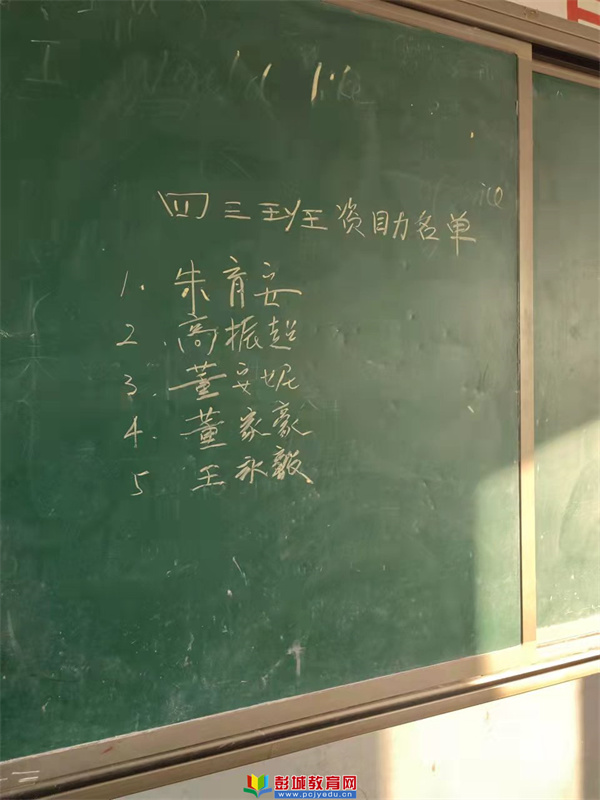 四三班资助名单
1. 朱育安
2. 高振超
3. 董安妮
4. 董家豪
5 王永毅
彭城教育网
www.pcjyedu.cn